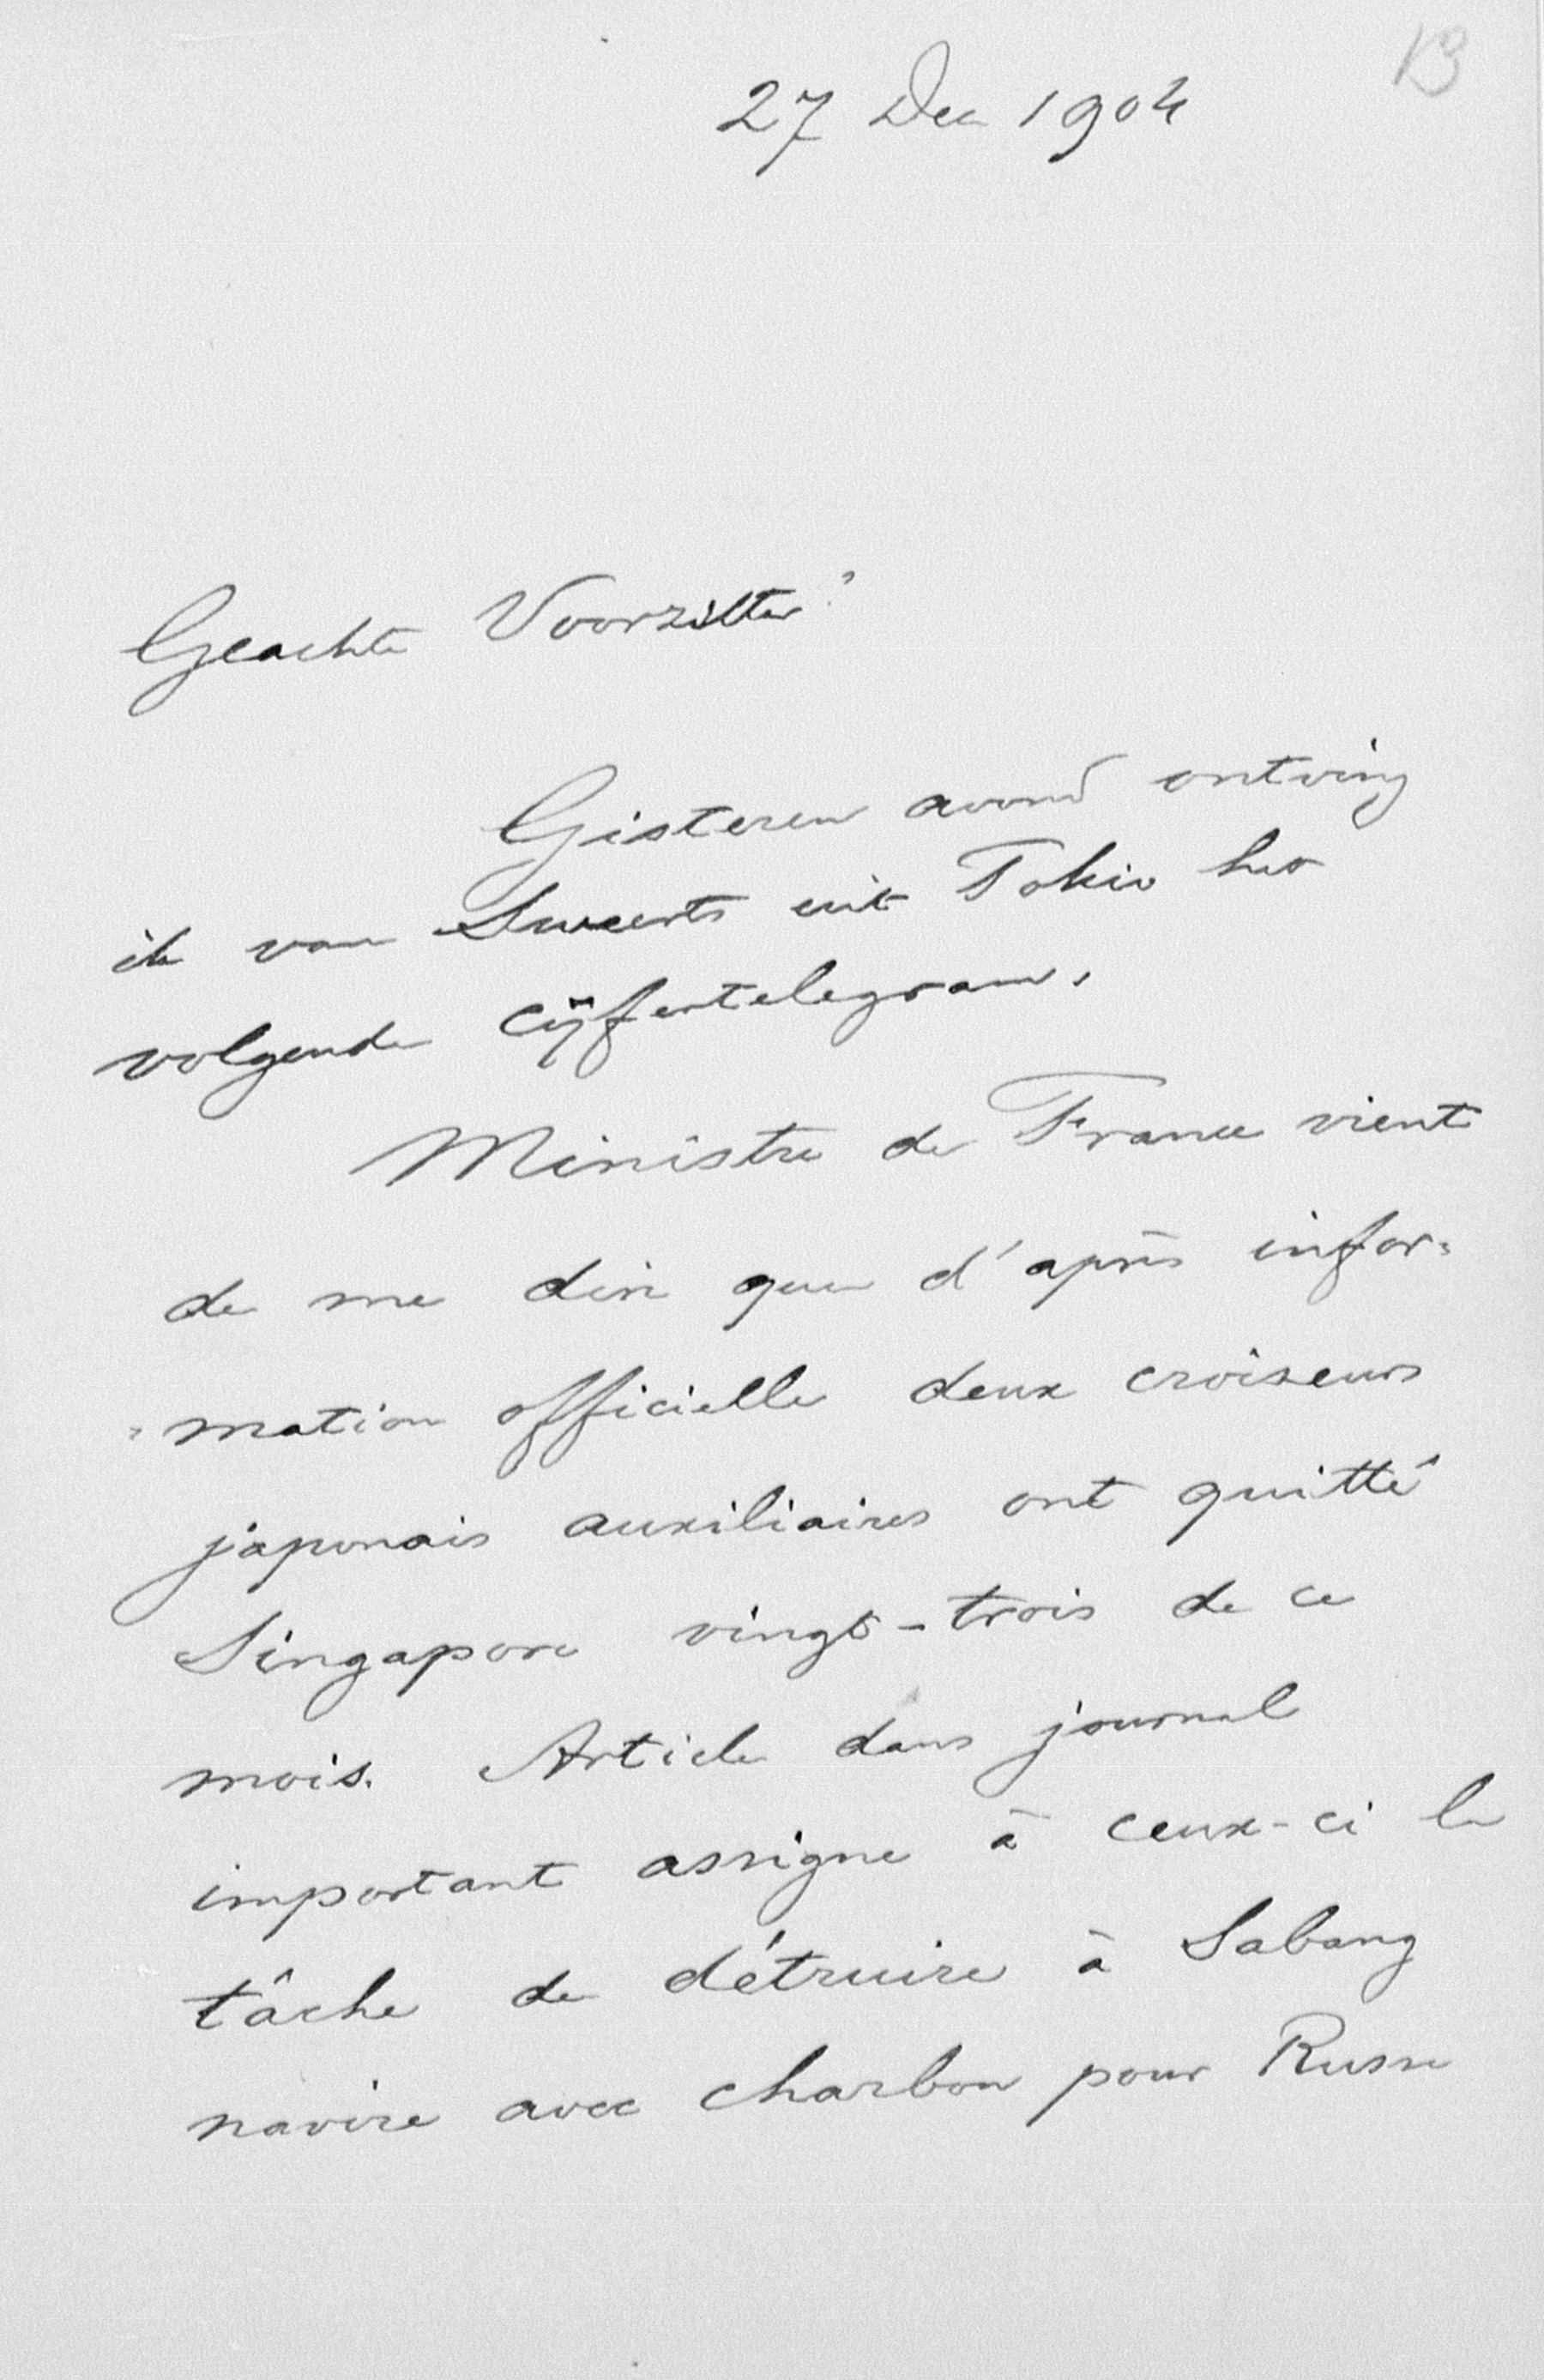 13
27 Dec 1904
Geachte Voorzitter!
Gisteren avond ontving
ik van Sweerts uit Tokio het
volgende cijfertelegram.
Ministre de France vient
de me dire que d'après infor=
=mation officielle deux croiseurs
japonais auxiliaires ont quitté
Singapore vingt-trois de ce
mois. Article dans journal
important assigne à ceux-ci la
tâche de détruire à Sabang
navire avec charbon pour Russe